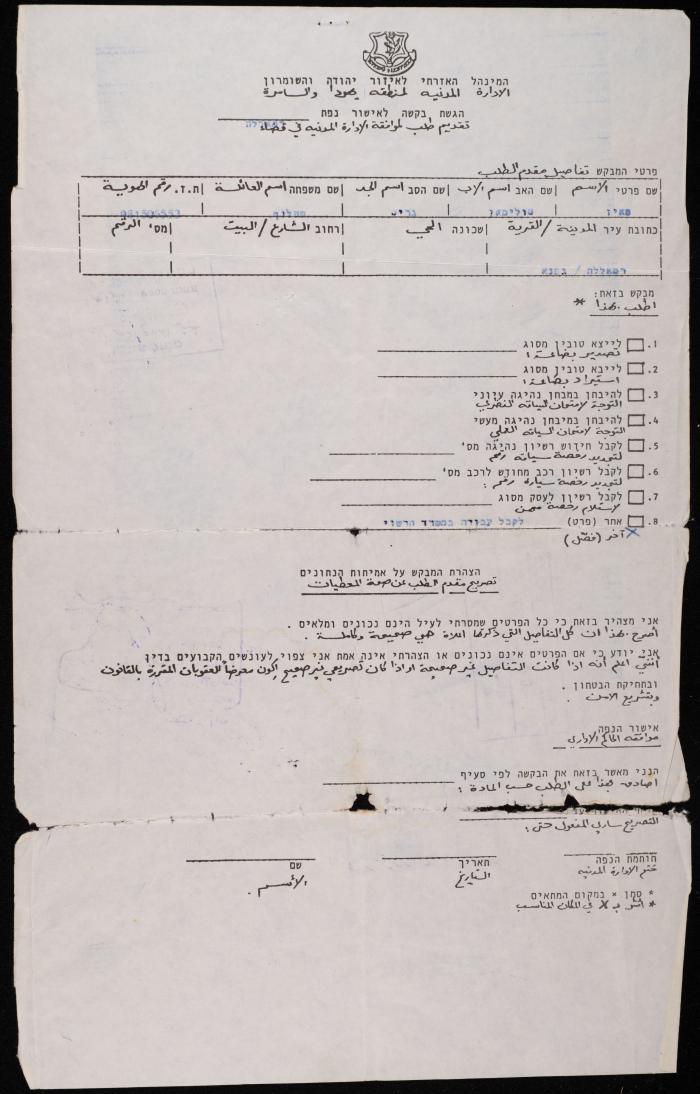 המינהל האזרחי לאיזור יהודה והשומרון
الادارة المدنية لمنطقة يهودا والسامرة
הגשת בקשה לאישור נפת
تقديم طلب لموافقة الادارة المدنية في قضاء
פרטי המבקש تفاصيل مقدم الطلب
שם פרטי الاسم שם האב اسم الاب שם הסב اسم الجد שם משפחה اسم العائلة ת.ז. رقم الهوية
סולימאן
כתובת עיר המدينة / القرية שכונה الحي רחוב الشارع / البيت מס' الرقم
רמאללה /
מבקש בזאת:
اطلب بهذا *
1. לייצא טובין מסוג
تصدير بضاعة:
2. לייבא טובין מסוג
استيراد بضاعة:
3. להיבחן במבחן נהיגה עיוני
التوجة لامتحان السياقه النظري
4. להיבחן במיבחן נהיגה מעשי
التوجة لامتحان السياقه العملي
5. לקבל חידוש רשיון נהיגה מס'
لتجديد رخصة سياقه رقم
6. לקבל רשיון רכב מחודש לרכב מס'
لتجديد رخصة سيارة رقم:
7. לקבל רשיון לעסק מסוג
لاستلام رخصة مهن
8. אחר (פרט) לקבל עבודה במשרד הרשוי
X آخر (فصّل)
הצהרת המבקש על אמיתות הנתונים
تصريح مقدم الطلب عن صحة المعطيات
אני מצהיר בזאת כי כל הפרטים שמסרתי לעיל הינם נכונים ומלאים.
أصرح بهذا ان كل التفاصيل التي ذكرتها اعلاه هي صحيحة وكاملة.
אני יודע כי אם הפרטים אינם נכונים או הצהרתי אינה אמת אני צפוי לעונשים הקבועים בדין
أنني اعلم أنه اذا كانت التفاصيل غير صحيحة او اذا كان تصريحي غير صحيح اكون معرضاً للعقوبات المقررة بالقانون
ובתחיקת הבטחון.
وبتشريع الامن.
אישור הנפה
موافقة الحاكم الاداري
הנני מאשר בזאת את הבקשה לפי סעיף
اصادق بهذا على الطلب حسب المادة:
التصريح ساري المفعول حتى:
חותמת הנפה תאריך שם
ختم الادارة المدنيه التاريخ الأسم.
* סמן × במקום המתאים
* أشر بـ X في المكان المناسب